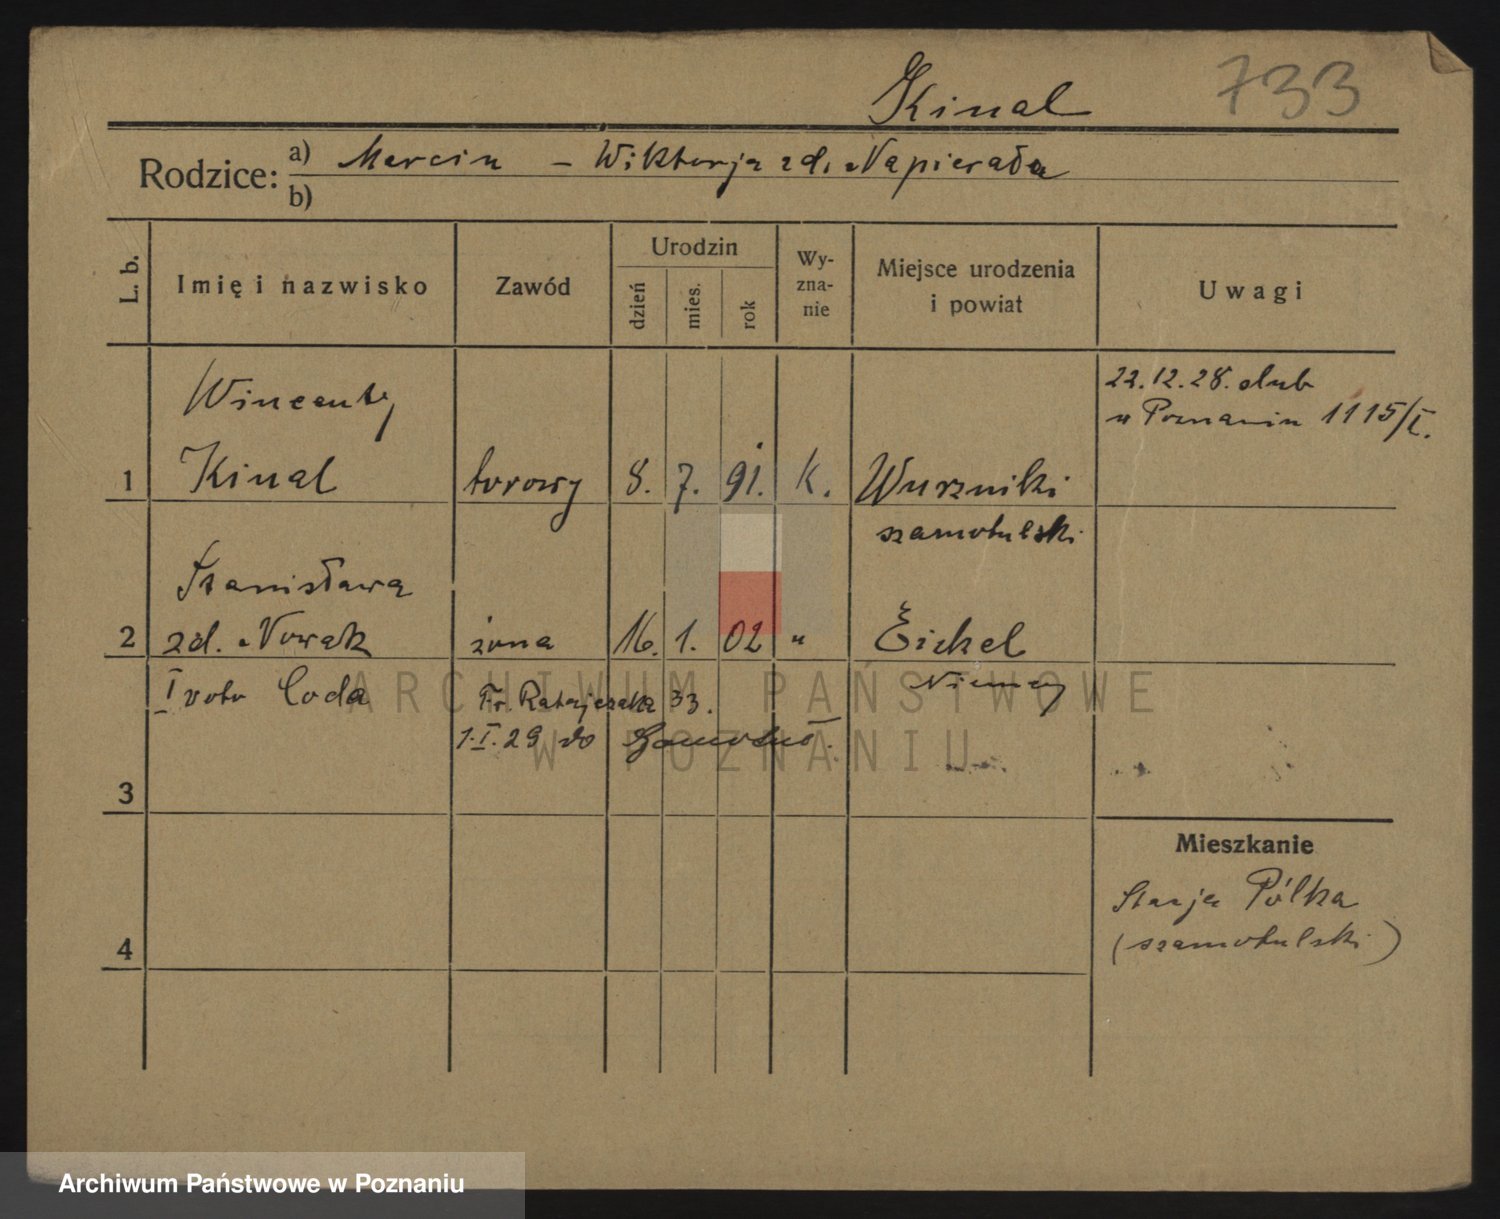 Kinal 733
Rodzice: a) Marcin – Wiktorja zd. Napierała
b)
L. b. Imię i nazwisko Zawód Urodzin dzień mies. rok Wy-zna-nie Miejsce urodzenia i powiat Uwagi
22.12.28. ślub
w Poznaniu 1115/I.
Wincenty
1 Kinal torowy 8. 7. 91. K. Wurzniki
szamotulski
Stanisława
2 zd. Nowak żona 16. 1. 02 " Eickel
I voto Coda Niemcy
Fr. Ratajczaka 33.
1.I.29 do Szamotuł.
3
Mieszkanie
Stacja Pólka
(szamotulski)
4
ARCHIWUM PAŃSTWOWE
W POZNANIU
Archiwum Państwowe w Poznaniu